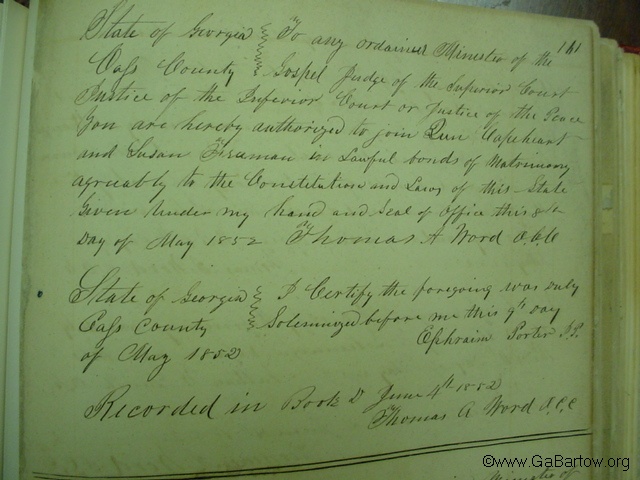 State of Georgia To any ordained Minister of the 141
Cass County Gospel Judge of the Superior Court
Justice of the Inferior Court or Justice of the Peace
you are hereby authorized to join Capeheart
and Susan Freeman in Lawful bonds of Matrimony
agreeably to the Constitution and Laws of this State
Given under my hand and seal of office this 8th
Day of May 1852 Thomas A Word C.C.O
State of Georgia I Certify the foregoing was duly
Cass County Solemnized before me this 9th day
of May 1852 Ephraim Porter J.P.
Recorded in Book D June 4th 1852
Thomas A Word C.C.O
©www.GaBartow.org